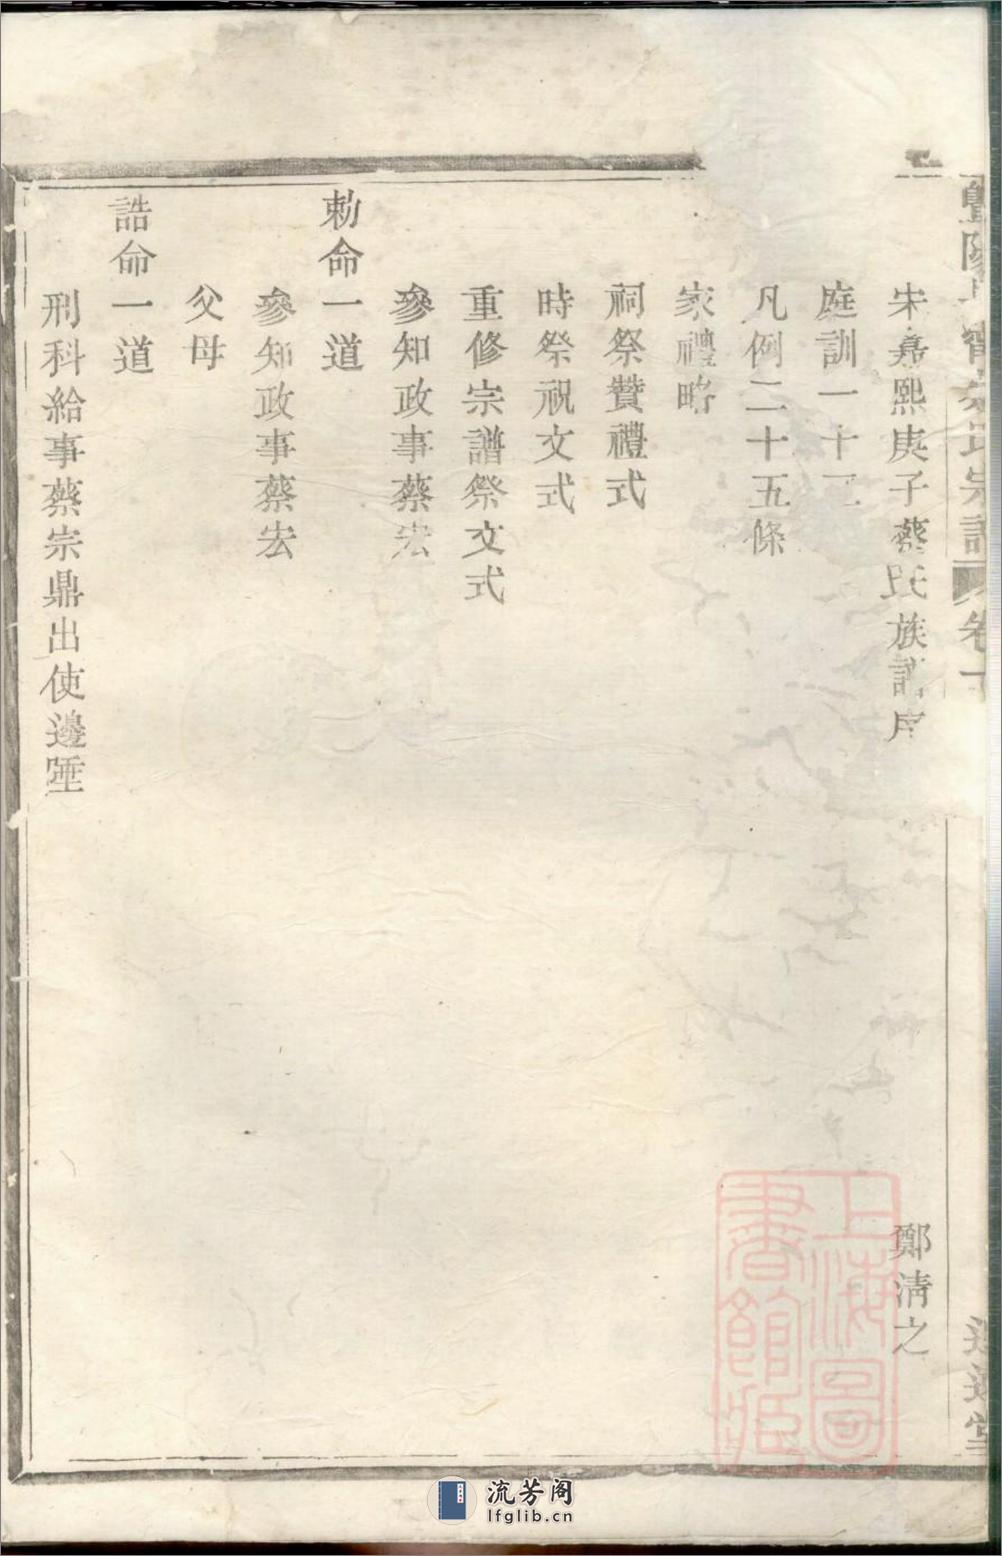 宋嘉熙庚子蔡氏族譜序 鄭淸之
庭訓一十二
凡例二十五條
家禮略
祠祭贊禮式
時祭祝文式
重修宗譜祭文式
參知政事蔡宏
勅命一道
參知政事蔡宏
父母
誥命一道
刑科給事蔡宗鼎出使邊陲
卷一
上海圖
書館藏
流芳阁
lfglib.cn